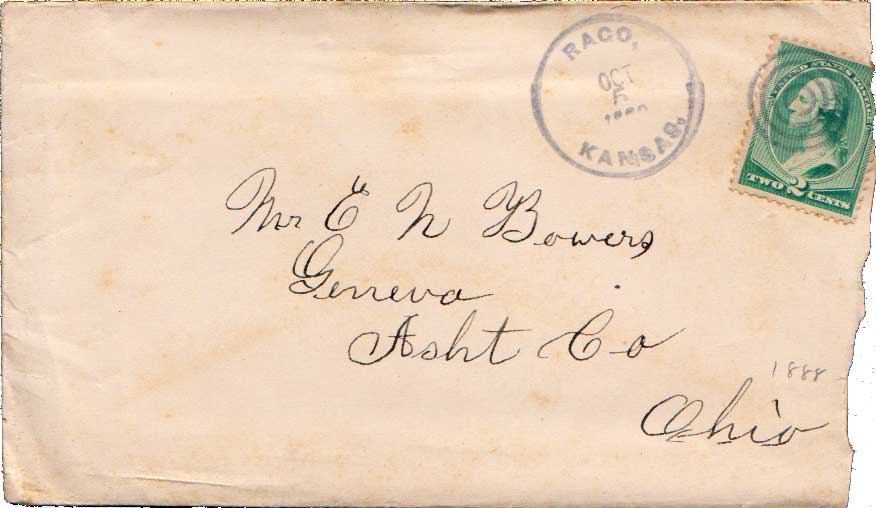 RAGO,
OCT
5
KANSAS.
UNITED STATES
TWO 2 CENTS
Mr E N Bowers
Geneva
Asht Co
Ohio
1888